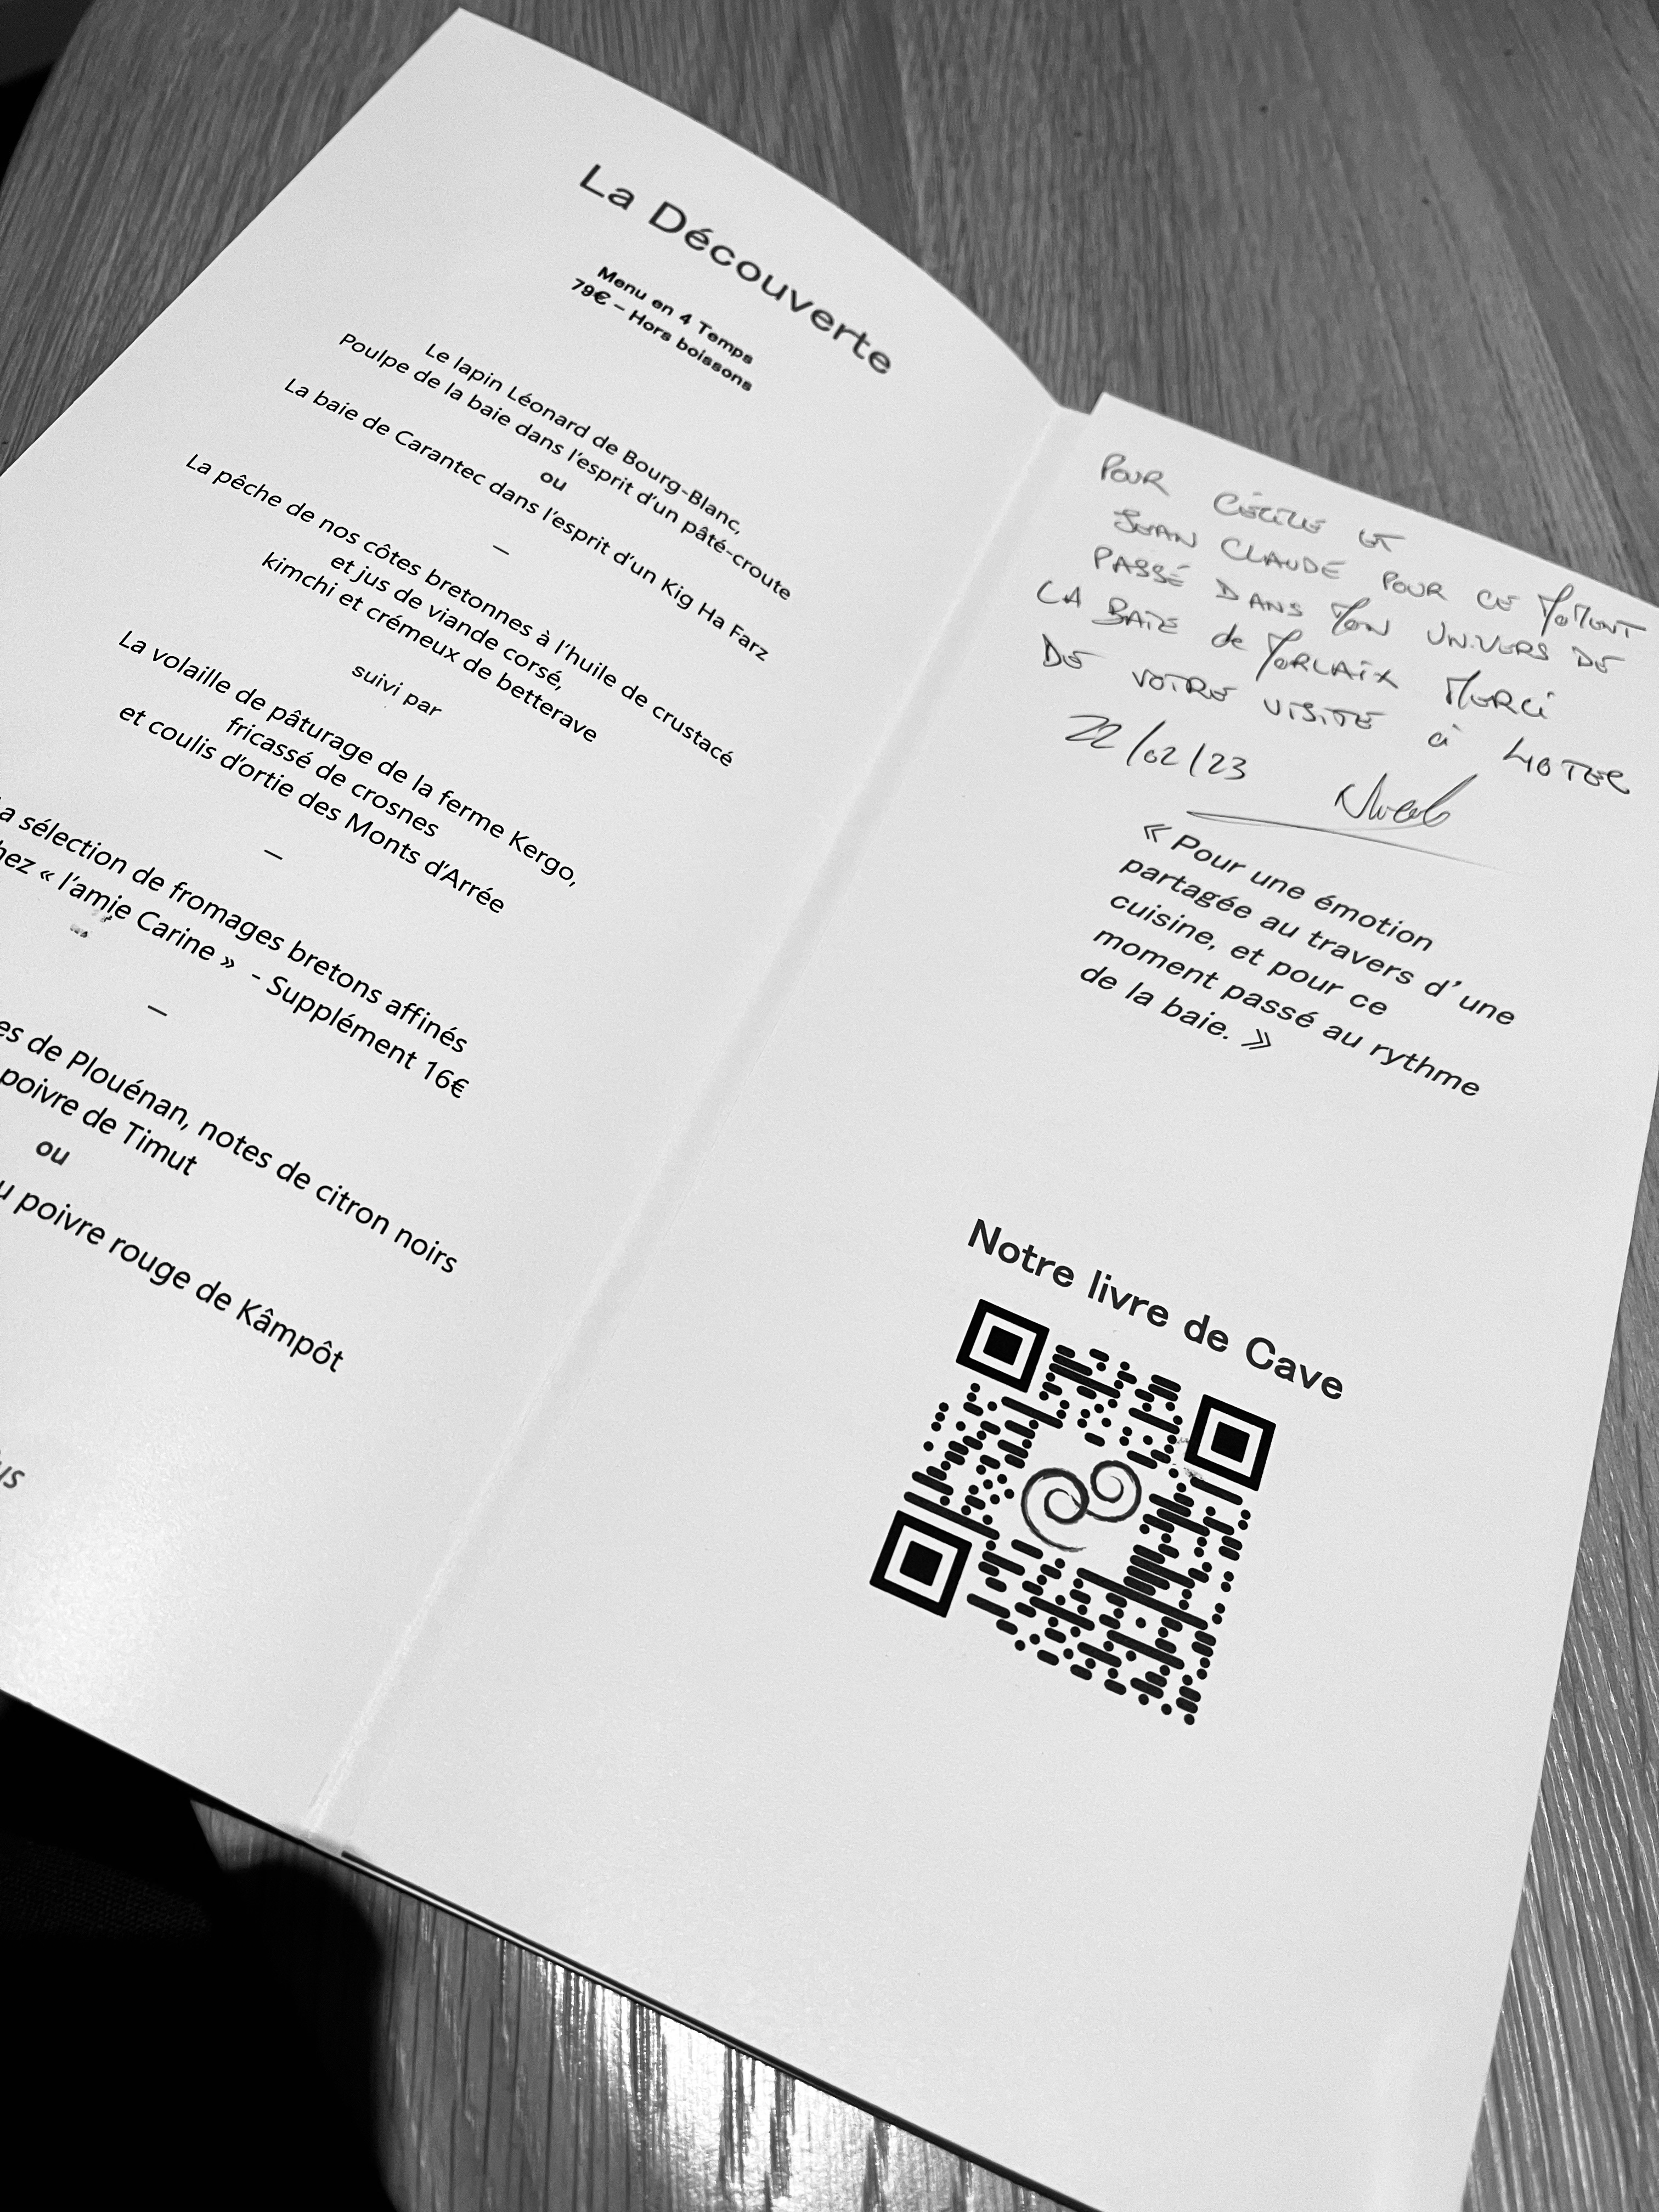 La Découverte
Menu en 4 Temps
79€ – Hors boissons
Le lapin Léonard de Bourg-Blanc,
Poulpe de la baie dans l'esprit d'un pâté-croute
ou
La baie de Carantec dans l'esprit d'un Kig Ha Farz
–
La pêche de nos côtes bretonnes à l'huile de crustacé
et jus de viande corsé,
kimchi et crémeux de betterave
suivi par
La volaille de pâturage de la ferme Kergo,
fricassé de crosnes
et coulis d'ortie des Monts d'Arrée
–
sélection de fromages bretons affinés
« l'amie Carine » - Supplément 16€
–
de Plouénan, notes de citron noirs
poivre de Timut
ou
poivre rouge de Kâmpôt
POUR CÉCILE ET
JEAN CLAUDE POUR CE MOMENT
PASSÉ DANS MON UNIVERS DE
LA BAIE de MORLAIX MERCI
DE VOTRE VISITE à
22/02/23
« Pour une émotion
partagée au travers d'une
cuisine, et pour ce
moment passé au rythme
de la baie. »
Notre livre de Cave